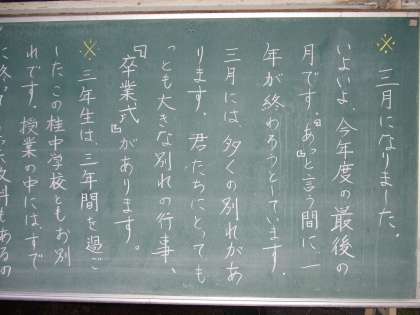 ※ 三月になりました。
いよいよ、今年度の最後の
月です。“あっ”と言う間に、一
年が終わろうとしています。
三月には、多くの別れがあ
ります。君たちにとっても
っとも大きな別れの行事、
『卒業式』があります。
※ 三年生は、三年間を過ご
した、この桂中学校ともお別
れです。授業の中には、すで
に終
教科もあるの